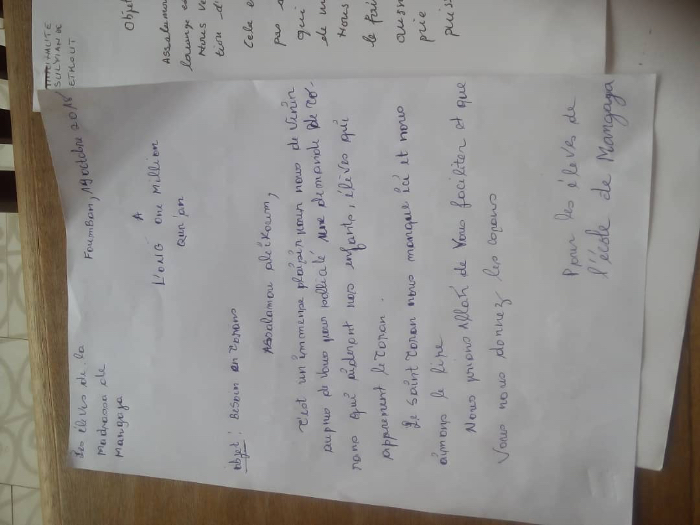 Les élèves de la
Madrassa de
Mangaya
Foumban, 19 octobre 2018
A
L'ONG One Million
Qur'an
Objet: Besoin en corans
Assalamou aleikoum,
C'est un immense plaisir pour nous de venir
auprès de vous pour sollicité une demande de co-
rans qui aideront nos enfants, élèves qui
apprennent le coran.
Le saint coran nous manque ici et nous
aimons le lire
Nous prions Allah de vous faciliter et que
Vous nous donnez les corans
Pour les élèves de
l'école de Mangaya
ETHOUT
Objet
Assalamou
Nous ve
tion d'
Cela e
pas
qui
de
Nous
le fai
prie
puiss